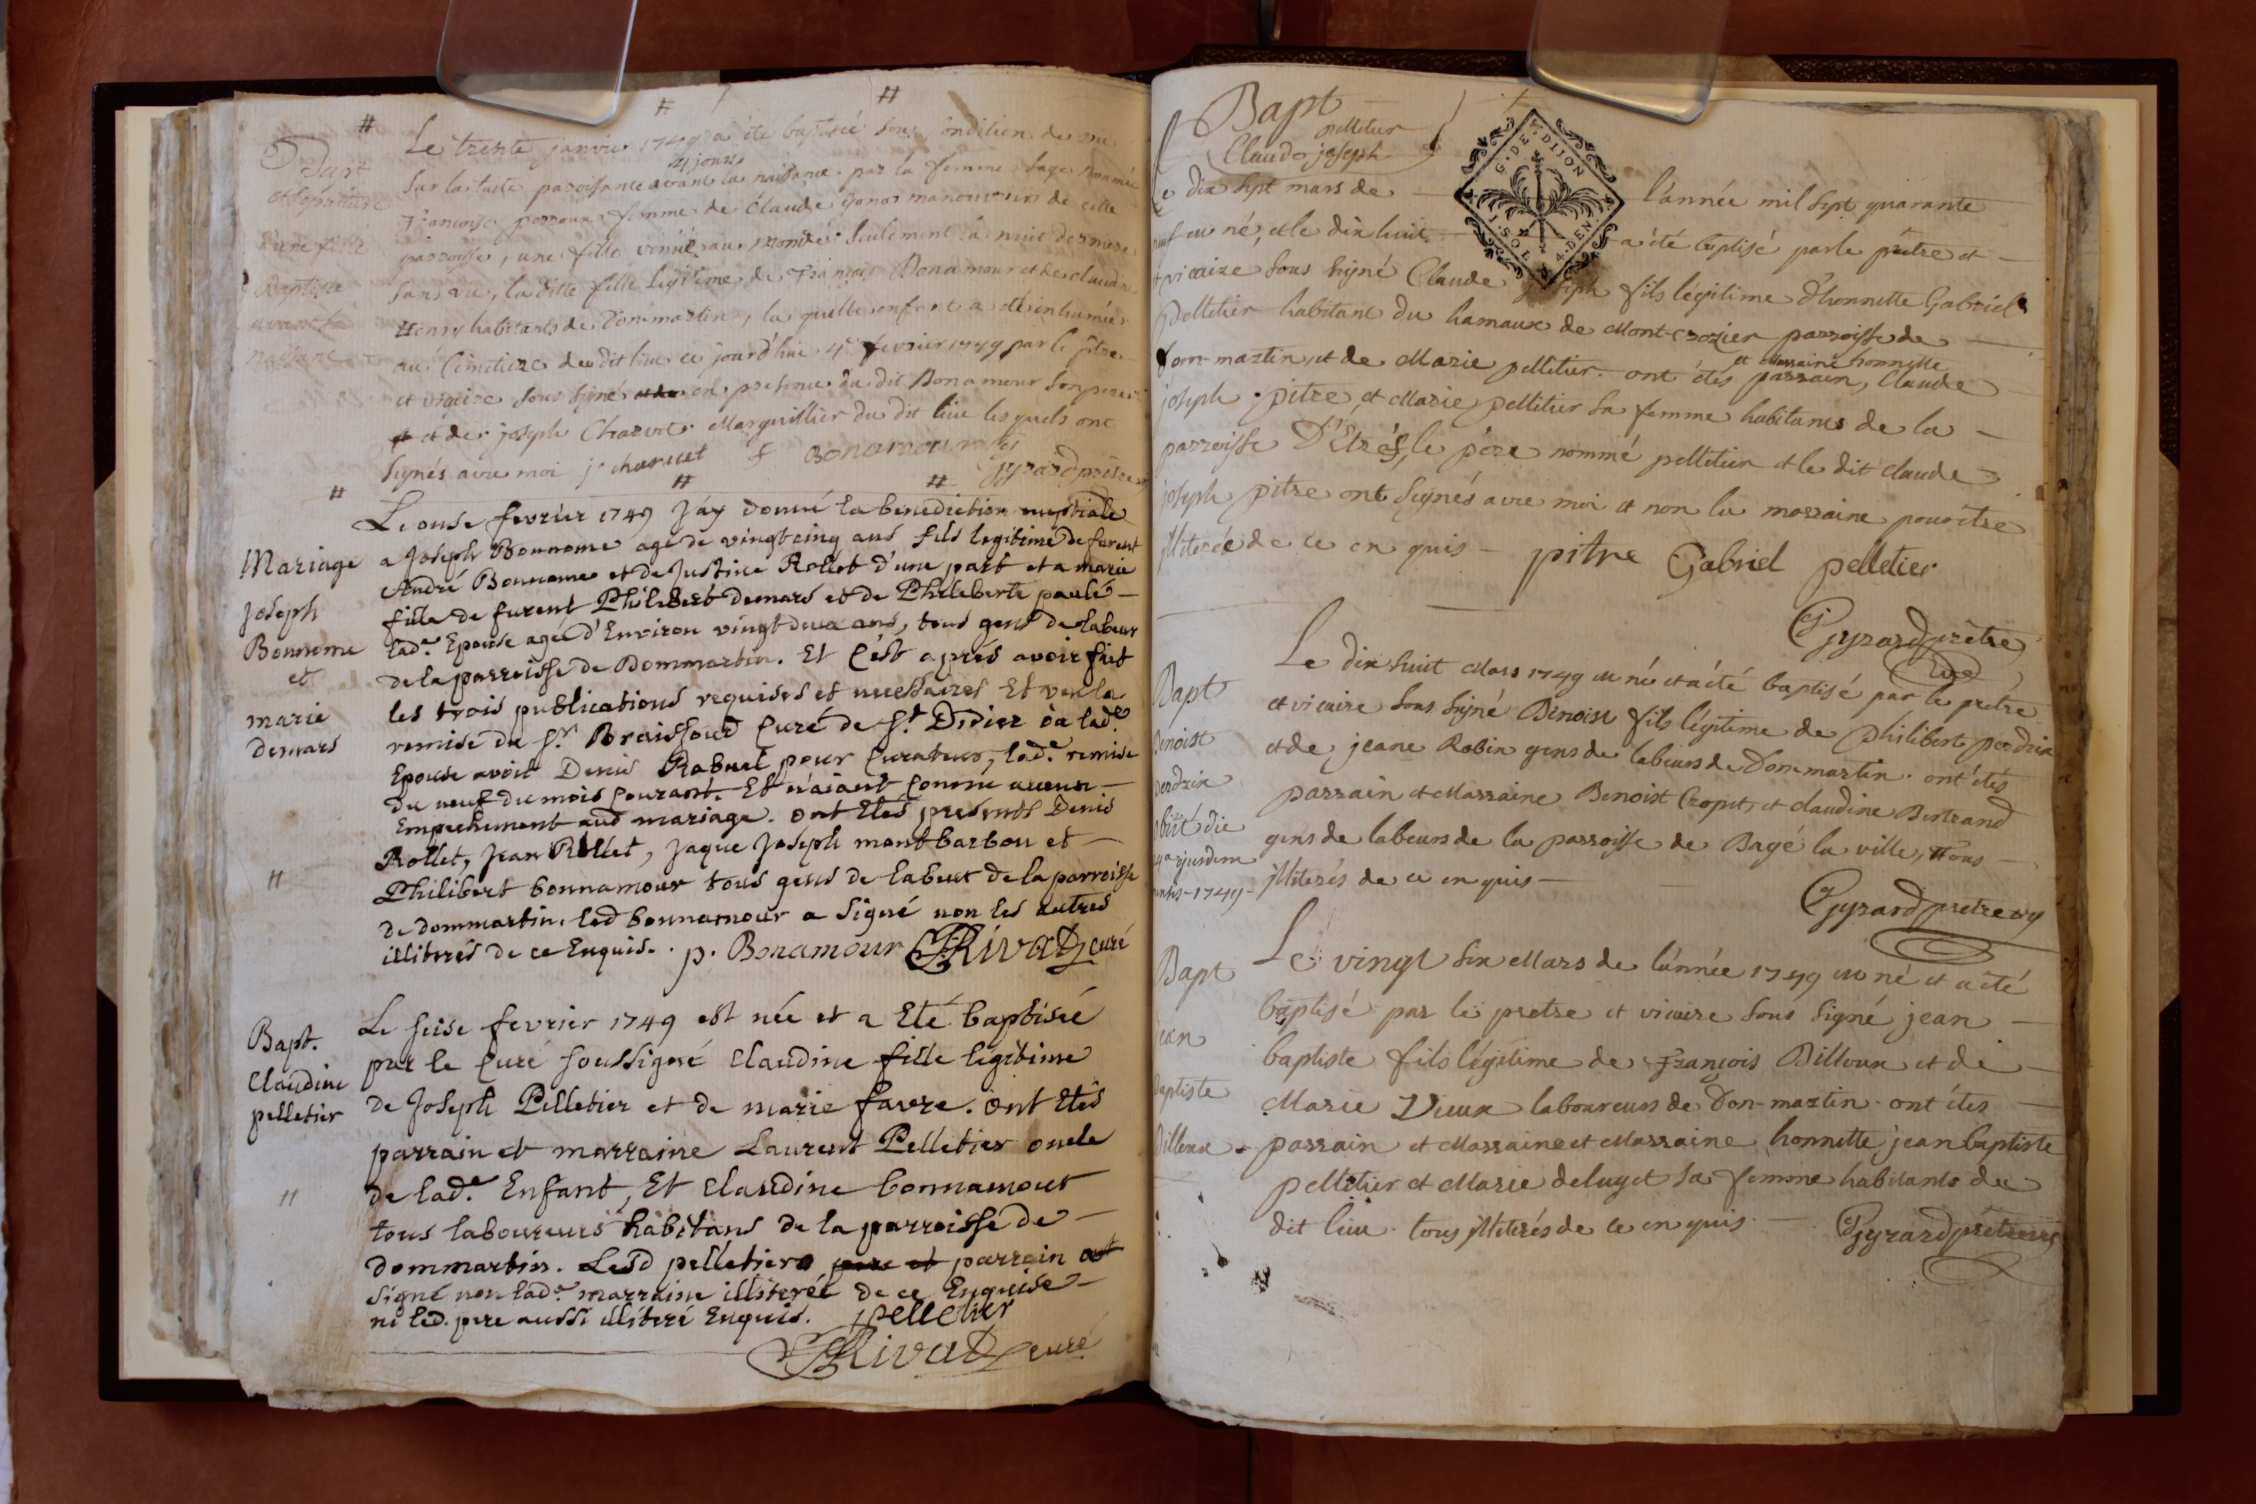 Bapt
et sepulture
d'une fille
Baptisée
avant sa
naissance
Le trente janvier 1749 a été baptisée sous condition
4 jours
sur la teste paroissante avant la naissance par la femme sage nommée
françoise perroux femme de Claude gonos manouvrier de cette
parroisse, une fille venüe au monde seulement la nuit derniere
sans vie, la ditte fille légitime de françois Bonamour et de claudine
Henry habitants de Dommartin, la quelle enfant a été inhumée
au Cimetiere du dit lieu ce jourd'hui 4e fevrier 1749 par le pretre
et vicaire sous signé en presence du dit Bonamour son pere
et de joseph Charvet Marguillier du dit lieu les quels ont
signés avec moi j charvet f Bonamour
Gyrard prêtre
Mariage
Joseph
Bonnome
et
marie
demars
Le onse fevrier 1749 j'ay donné la benediction nuptiale
a Joseph Bonnome agé de vingt cinq ans fils legitime de furent
André Bonnome et de Justine Rollet d'une part et a marie
fille de furent Philibert demars et de Philiberte paulé
lad.e Epouse agée d'Environ vingt deux ans, tous gens de labeur
de la parroisse de Dommartin. Et c'est aprés avoir fait
les trois publications requises et necessaires Et veu la
remise du s.r Braissoud Curé de s.t Didier où lad.e
Epouse avoit Denis Rabuel pour Curateur, lad.e remise
du neuf du mois Courant. Et n'aiant Connu aucun
Empechement aud mariage. ont Etés presents Denis
Rollet, Jean Rollet, Jaque Joseph montbarbon et
Philibert bonnamour tous gens de labeur de la parroisse
de dommartin. led bonnamour a signé non les autres
illiterés de ce Enquis. p. Bonamour Rivat curé
Bapt.
Claudine
pelletier
Le seise fevrier 1749 est née et a Eté baptisée
par le Curé soussigné Claudine fille legitime
de Joseph Pelletier et de marie favre. ont Etés
parrain et marraine Laurent Pelletier oncle
de lad.e Enfant, Et Claudine bonnamour
tous laboureurs habitans de la parroisse de
dommartin. Lesd pelletier pere et parrain ont
signé non lad.e marraine illiterée de ce Enquise
ni led. pere aussi illiteré Enquis. pelletier
Rivat curé
Bapt
pelletier
Claude joseph
G. DE DIJON
I. SOL 4. DEN.
Le dix sept mars de l'année mil sept quarante
neuf est né, et le dix huit a été baptisé par le prêtre et
vicaire sous signé Claude joseph fils légitime d'honnette Gabriel
Pelletier habitant du hamaux de Mont-crozier parroisse de
et marraine honnette
Dom-martin, et de Marie pelletier. ont étés parrain, Claude
joseph pitre et Marie pelletier sa femme habitants de la
parroisse D'Etrés, le pere nommé pelletier et le dit claude
joseph pitre ont signés avec moi et non la marraine pour être
illiterée de ce en quis pitre Gabriel pelletier
Gyrard prêtre
vic
Bapt
Benoist
perdrix
obiit die
ejusdem
mensis 1749
Le dix huit Mars 1749 est né et a été baptisé par le pretre
et vicaire sous signé Benoist fils légitime de philibert perdrix
et de jeane Robin gens de labeurs de Dommartin. ont étés
parrain et Marraine Benoist Cropet, et claudine Bertrand
gens de labeurs de la parroisse de Bagé la ville, tous
illiterés de ce en quis
Gyrard pretre vic
Bapt
jean
baptiste
Billoux
Le vingt six Mars de l'année 1749 est né et a été
baptisé par le pretre et vicaire sous signé jean
baptiste fils légitime de françois Billoux et de
Marie Vieux laboureurs de Dom-martin. ont étés
parrain et Marraine et Marraine honnette jean baptiste
pelletier et Marie deluget sa femme habitants du
dit lieu. tous illiterés de ce en quis. Gyrard prêtre vic